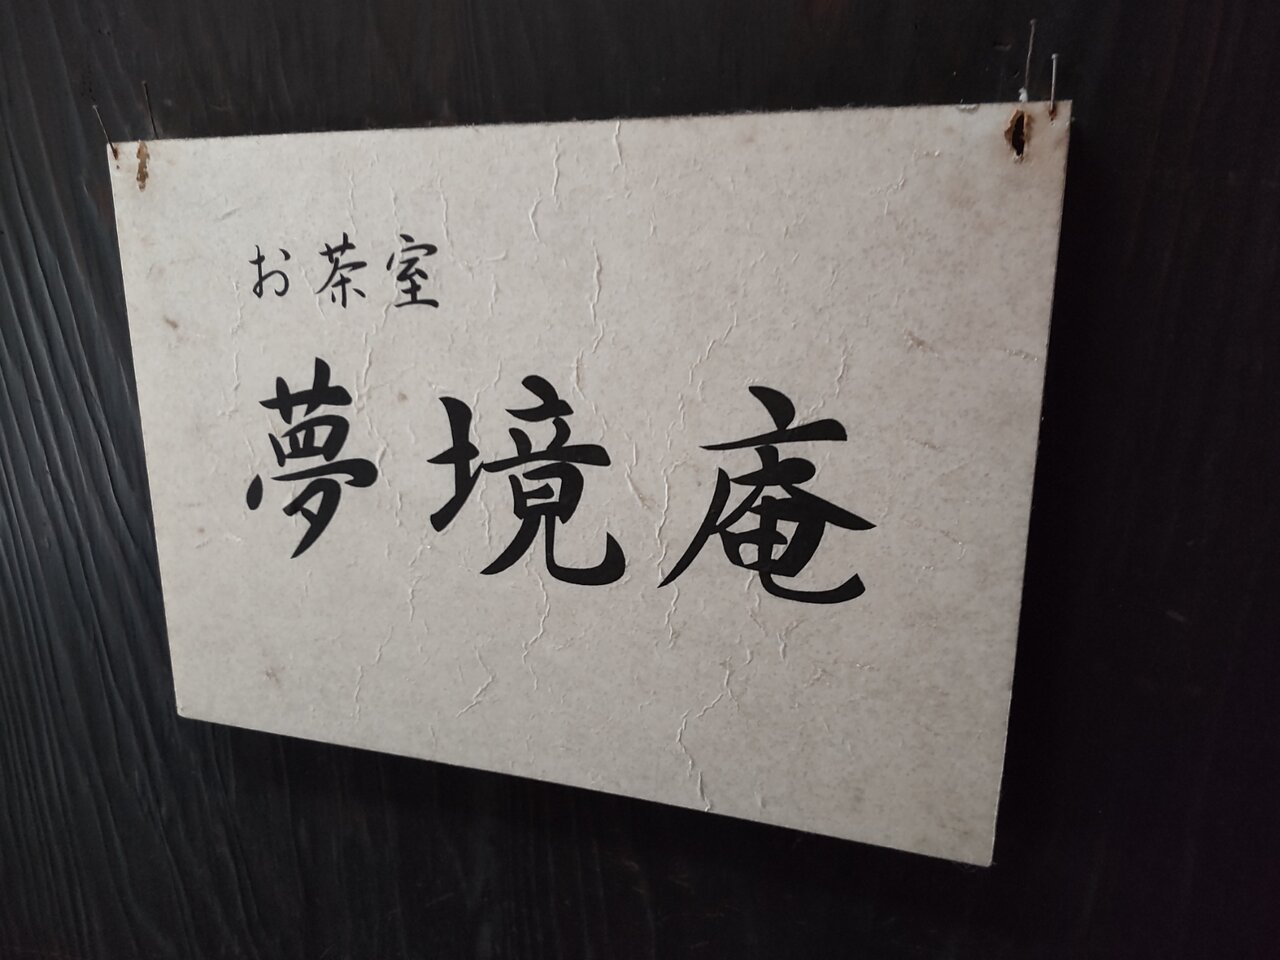 お茶室
夢境庵